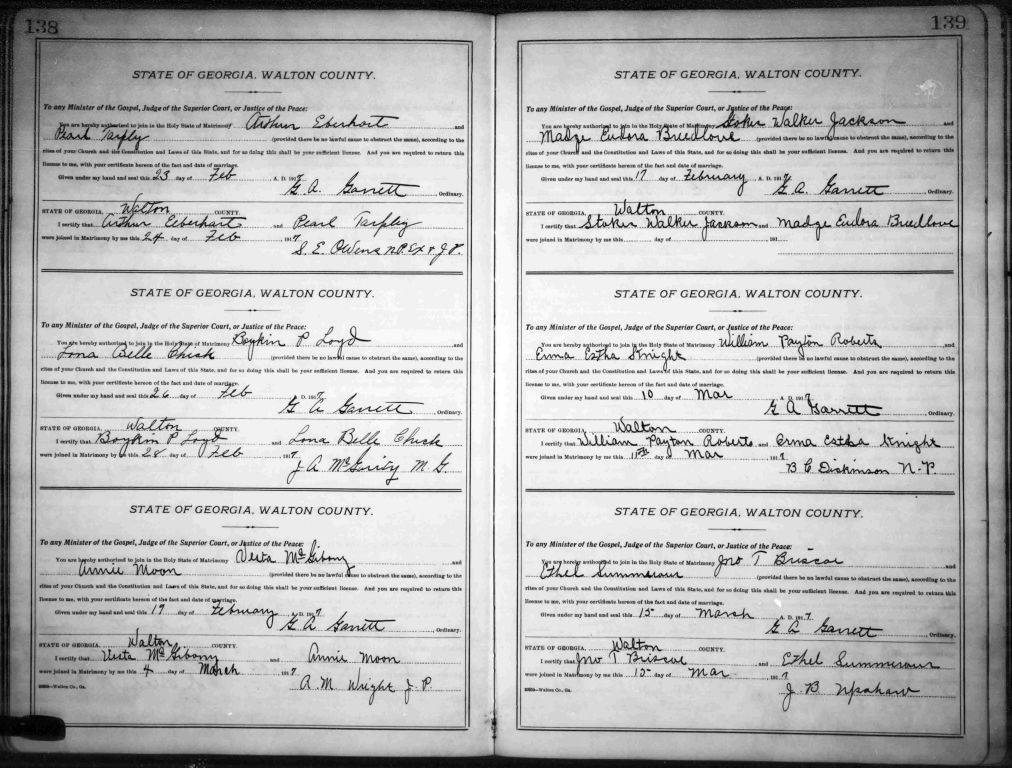 138
STATE OF GEORGIA, WALTON COUNTY.
To any Minister of the Gospel, Judge of the Superior Court, or Justice of the Peace:
You are hereby authorized to join in the Holy State of Matrimony Arthur Eberhart and
Pearl Tarpley (provided there be no lawful cause to obstruct the same), according to the
rites of your Church and the Constitution and Laws of this State, and for so doing this shall be your sufficient license. And you are required to return this
license to me, with your certificate hereon of the fact and date of marriage.
Given under my hand and seal this 23 day of Feb A. D. 1917
G. A. Garrett, Ordinary.
STATE OF GEORGIA, Walton COUNTY.
I certify that Arthur Eberhart and Pearl Tarpley
were joined in Matrimony by me this 24 day of Feb 1917
S. E. Owens N.P. Ex + J.P.
STATE OF GEORGIA, WALTON COUNTY.
To any Minister of the Gospel, Judge of the Superior Court, or Justice of the Peace:
You are hereby authorized to join in the Holy State of Matrimony Boykin P Loyd and
Lona Belle Chick (provided there be no lawful cause to obstruct the same), according to the
rites of your Church and the Constitution and Laws of this State, and for so doing this shall be your sufficient license. And you are required to return this
license to me, with your certificate hereon of the fact and date of marriage.
Given under my hand and seal this 26 day of Feb A. D. 1917
G A Garrett, Ordinary.
STATE OF GEORGIA, Walton COUNTY.
I certify that Boykin P Loyd and Lona Belle Chick
were joined in Matrimony by me this 28 day of Feb 1917
J A M. G.
STATE OF GEORGIA, WALTON COUNTY.
To any Minister of the Gospel, Judge of the Superior Court, or Justice of the Peace:
You are hereby authorized to join in the Holy State of Matrimony Vesta McGibony and
Annie Moon (provided there be no lawful cause to obstruct the same), according to the
rites of your Church and the Constitution and Laws of this State, and for so doing this shall be your sufficient license. And you are required to return this
license to me, with your certificate hereon of the fact and date of marriage.
Given under my hand and seal this 19 day of February A. D. 1917
G A Garrett, Ordinary.
STATE OF GEORGIA, Walton COUNTY.
I certify that Vesta McGibony and Annie Moon
were joined in Matrimony by me this 4 day of March 1917
A. M. Wright J. P.
139
STATE OF GEORGIA, WALTON COUNTY.
To any Minister of the Gospel, Judge of the Superior Court, or Justice of the Peace:
You are hereby authorized to join in the Holy State of Matrimony Stoker Walker Jackson and
Madge Eudora Breedlove (provided there be no lawful cause to obstruct the same), according to the
rites of your Church and the Constitution and Laws of this State, and for so doing this shall be your sufficient license. And you are required to return this
license to me, with your certificate hereon of the fact and date of marriage.
Given under my hand and seal this 17 day of February A. D. 1917
G. A. Garrett, Ordinary.
STATE OF GEORGIA, Walton COUNTY.
I certify that Stoker Walker Jackson and Madge Eudora Breedlove
were joined in Matrimony by me this day of 191
STATE OF GEORGIA, WALTON COUNTY.
To any Minister of the Gospel, Judge of the Superior Court, or Justice of the Peace:
You are hereby authorized to join in the Holy State of Matrimony William Payton Roberts and
Erma Estha Knight (provided there be no lawful cause to obstruct the same), according to the
rites of your Church and the Constitution and Laws of this State, and for so doing this shall be your sufficient license. And you are required to return this
license to me, with your certificate hereon of the fact and date of marriage.
Given under my hand and seal this 10 day of Mar A. D. 1917
G A Garrett, Ordinary.
STATE OF GEORGIA, Walton COUNTY.
I certify that William Payton Roberts and Erma Estha Knight
were joined in Matrimony by me this 11th day of Mar 1917
B C Dickinson N. P.
STATE OF GEORGIA, WALTON COUNTY.
To any Minister of the Gospel, Judge of the Superior Court, or Justice of the Peace:
You are hereby authorized to join in the Holy State of Matrimony Jno T Briscoe and
Ethel Summerour (provided there be no lawful cause to obstruct the same), according to the
rites of your Church and the Constitution and Laws of this State, and for so doing this shall be your sufficient license. And you are required to return this
license to me, with your certificate hereon of the fact and date of marriage.
Given under my hand and seal this 15 day of March A. D. 1917
G A Garrett, Ordinary.
STATE OF GEORGIA, Walton COUNTY.
I certify that Jno T Briscoe and Ethel Summerour
were joined in Matrimony by me this 15 day of Mar 1917
J B Upshaw